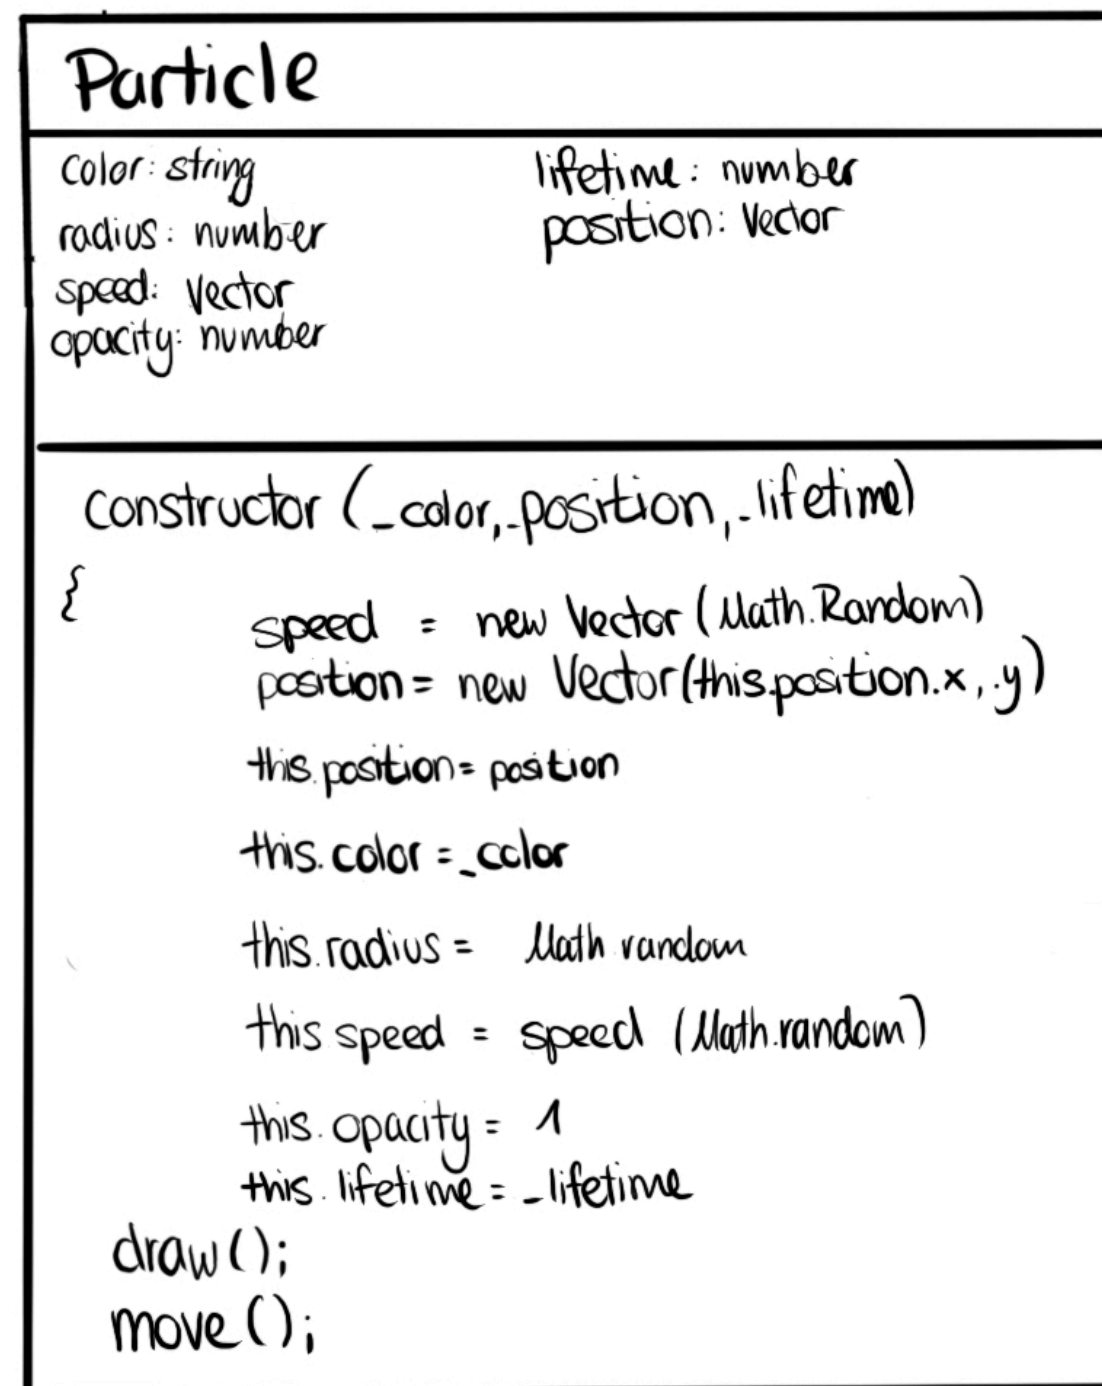 Particle
color: string
radius: number
speed: Vector
opacity: number
lifetime: number
position: Vector
constructor (_color, _position, _lifetime)
{
speed = new Vector (Math.Random)
position = new Vector(this.position.x, .y)
this.position = position
this.color = _color
this.radius = Math random
this speed = speed (Math.random)
this.opacity = 1
this.lifetime = _lifetime
draw();
move();